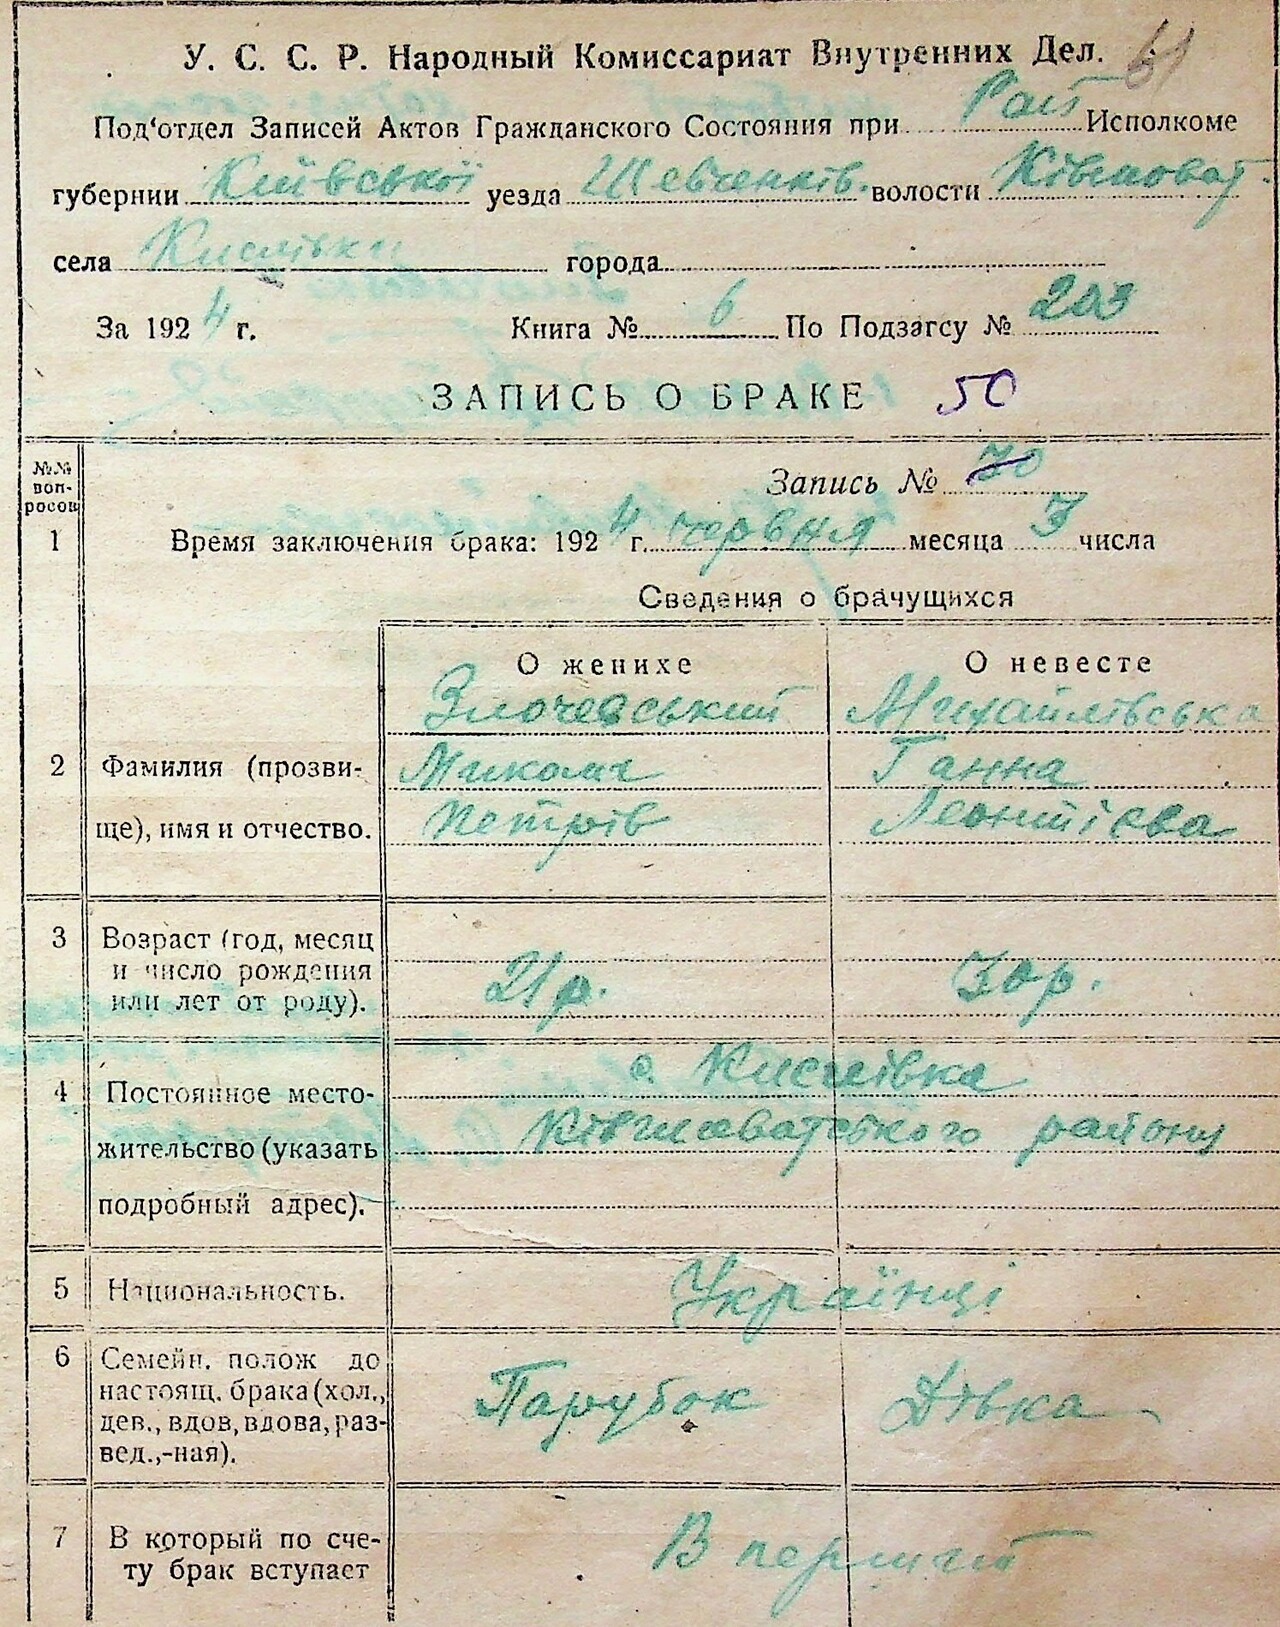 У. С. С. Р. Народный Комиссариат Внутренних Дел. 61
Под‘отдел Записей Актов Гражданского Состояния при Рай Исполкоме
губернии Київської уезда Шевченків. волости Ківшоват.
села Кислівки города
За 1924 г. Книга № 6 По Подзагсу № 203
ЗАПИСЬ О БРАКЕ 50
№№ вопросов
Запись № 70
1 Время заключения брака: 1924 г. червня месяца 3 числа
Сведения о брачущихся
О женихе О невесте
Злочевський Михайлівська
2 Фамилия (прозви- Микола Ганна
ще), имя и отчество. Петрів Леонтієва
3 Возраст (год, месяц
и число рождения 21 р. 30 р.
или лет от роду).
с. Кислівка
4 Постоянное место-
Ківшоватського району
жительство (указать
подробный адрес).
5 Национальность. Українці
6 Семейн. полож до
настоящ. брака (хол., Парубок Дівка
дев., вдов, вдова, раз-
вед.,-ная).
7 В который по сче- В перший
ту брак вступает